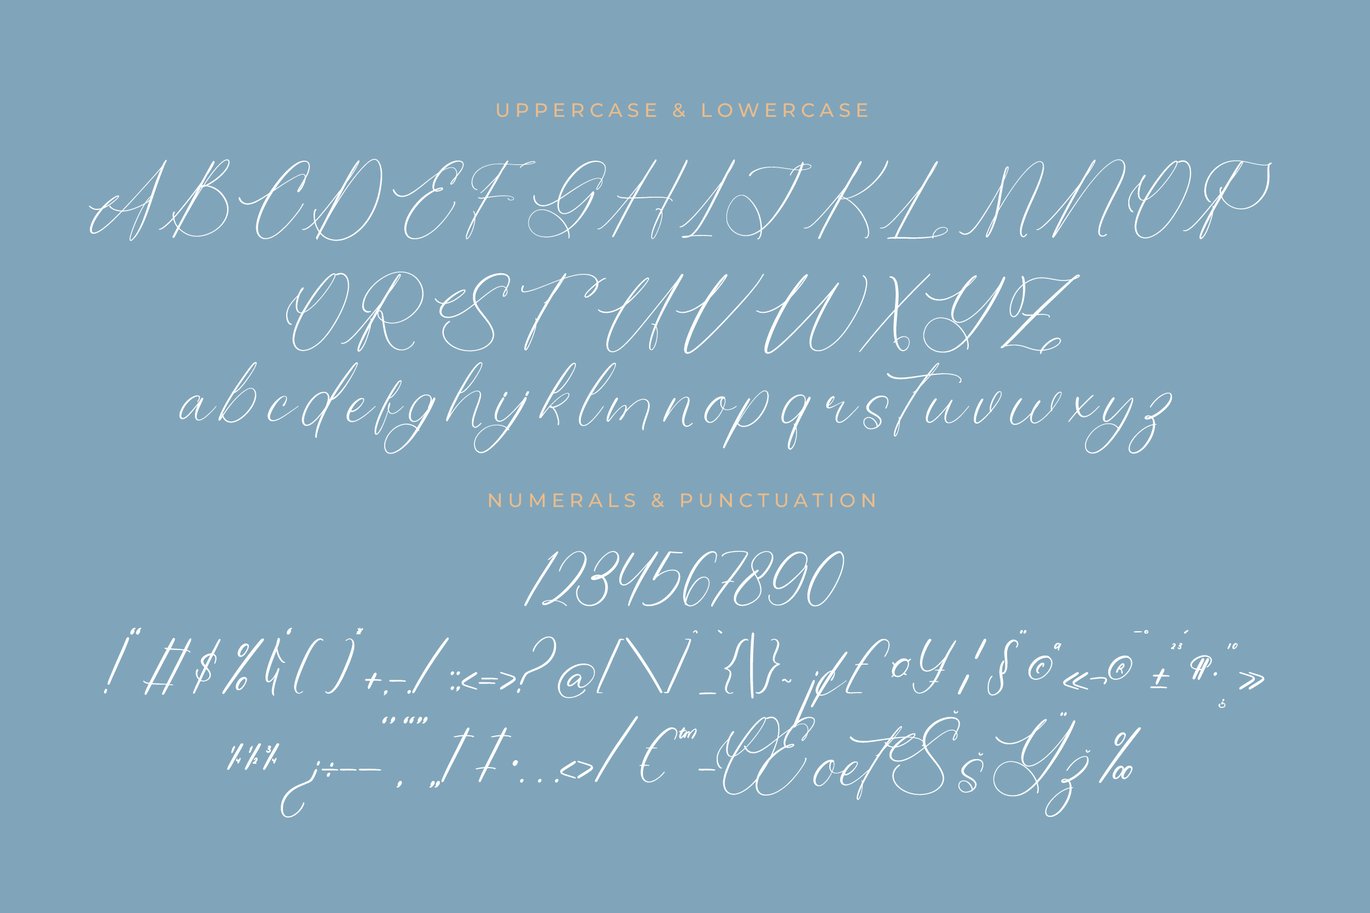 UPPERCASE & LOWERCASE
ABCDEFGHIJKLMNOP
QRSTUVWXYZ
abcdefghijklmnopqrstuvwxyz
NUMERALS & PUNCTUATION
1234567890
!"#$%&'()*+,-./:;<=>?@[\]^_`{|}~¡¢£¤¥¦§¨©ª«¬®¯°±²³´¶·¸¹º»
¼½¾¿÷–—‘’‚“”„†‡•…‹›⁄€™−ŒœŠšŸž‰